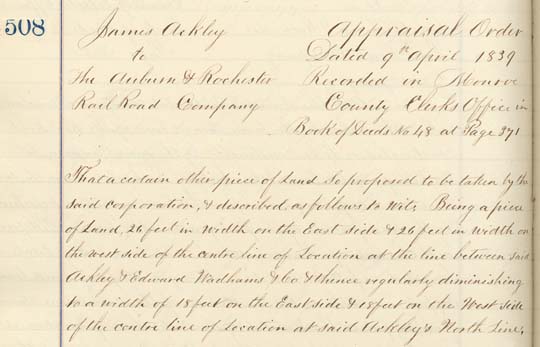 508
James Ackley
to
The Auburn & Rochester
Rail Road Company
Appraisal Order
Dated 9th April 1839
Recorded in Monroe
County Clerks Office in
Book of Deeds No 48 at Page 371
That a certain other piece of Land so proposed to be taken by the
said corporation, & described as follows to Wit; Being a piece
of Land, 26 feet in width on the East side & 26 feet in width on
the west side of the centre line of Location at the line between said
Ackley & Edward Wadhams & Co & thence regularly diminishing
to a width of 18 feet on the East side & 18 feet on the West side
of the centre line of Location at said Ackley's North Line,